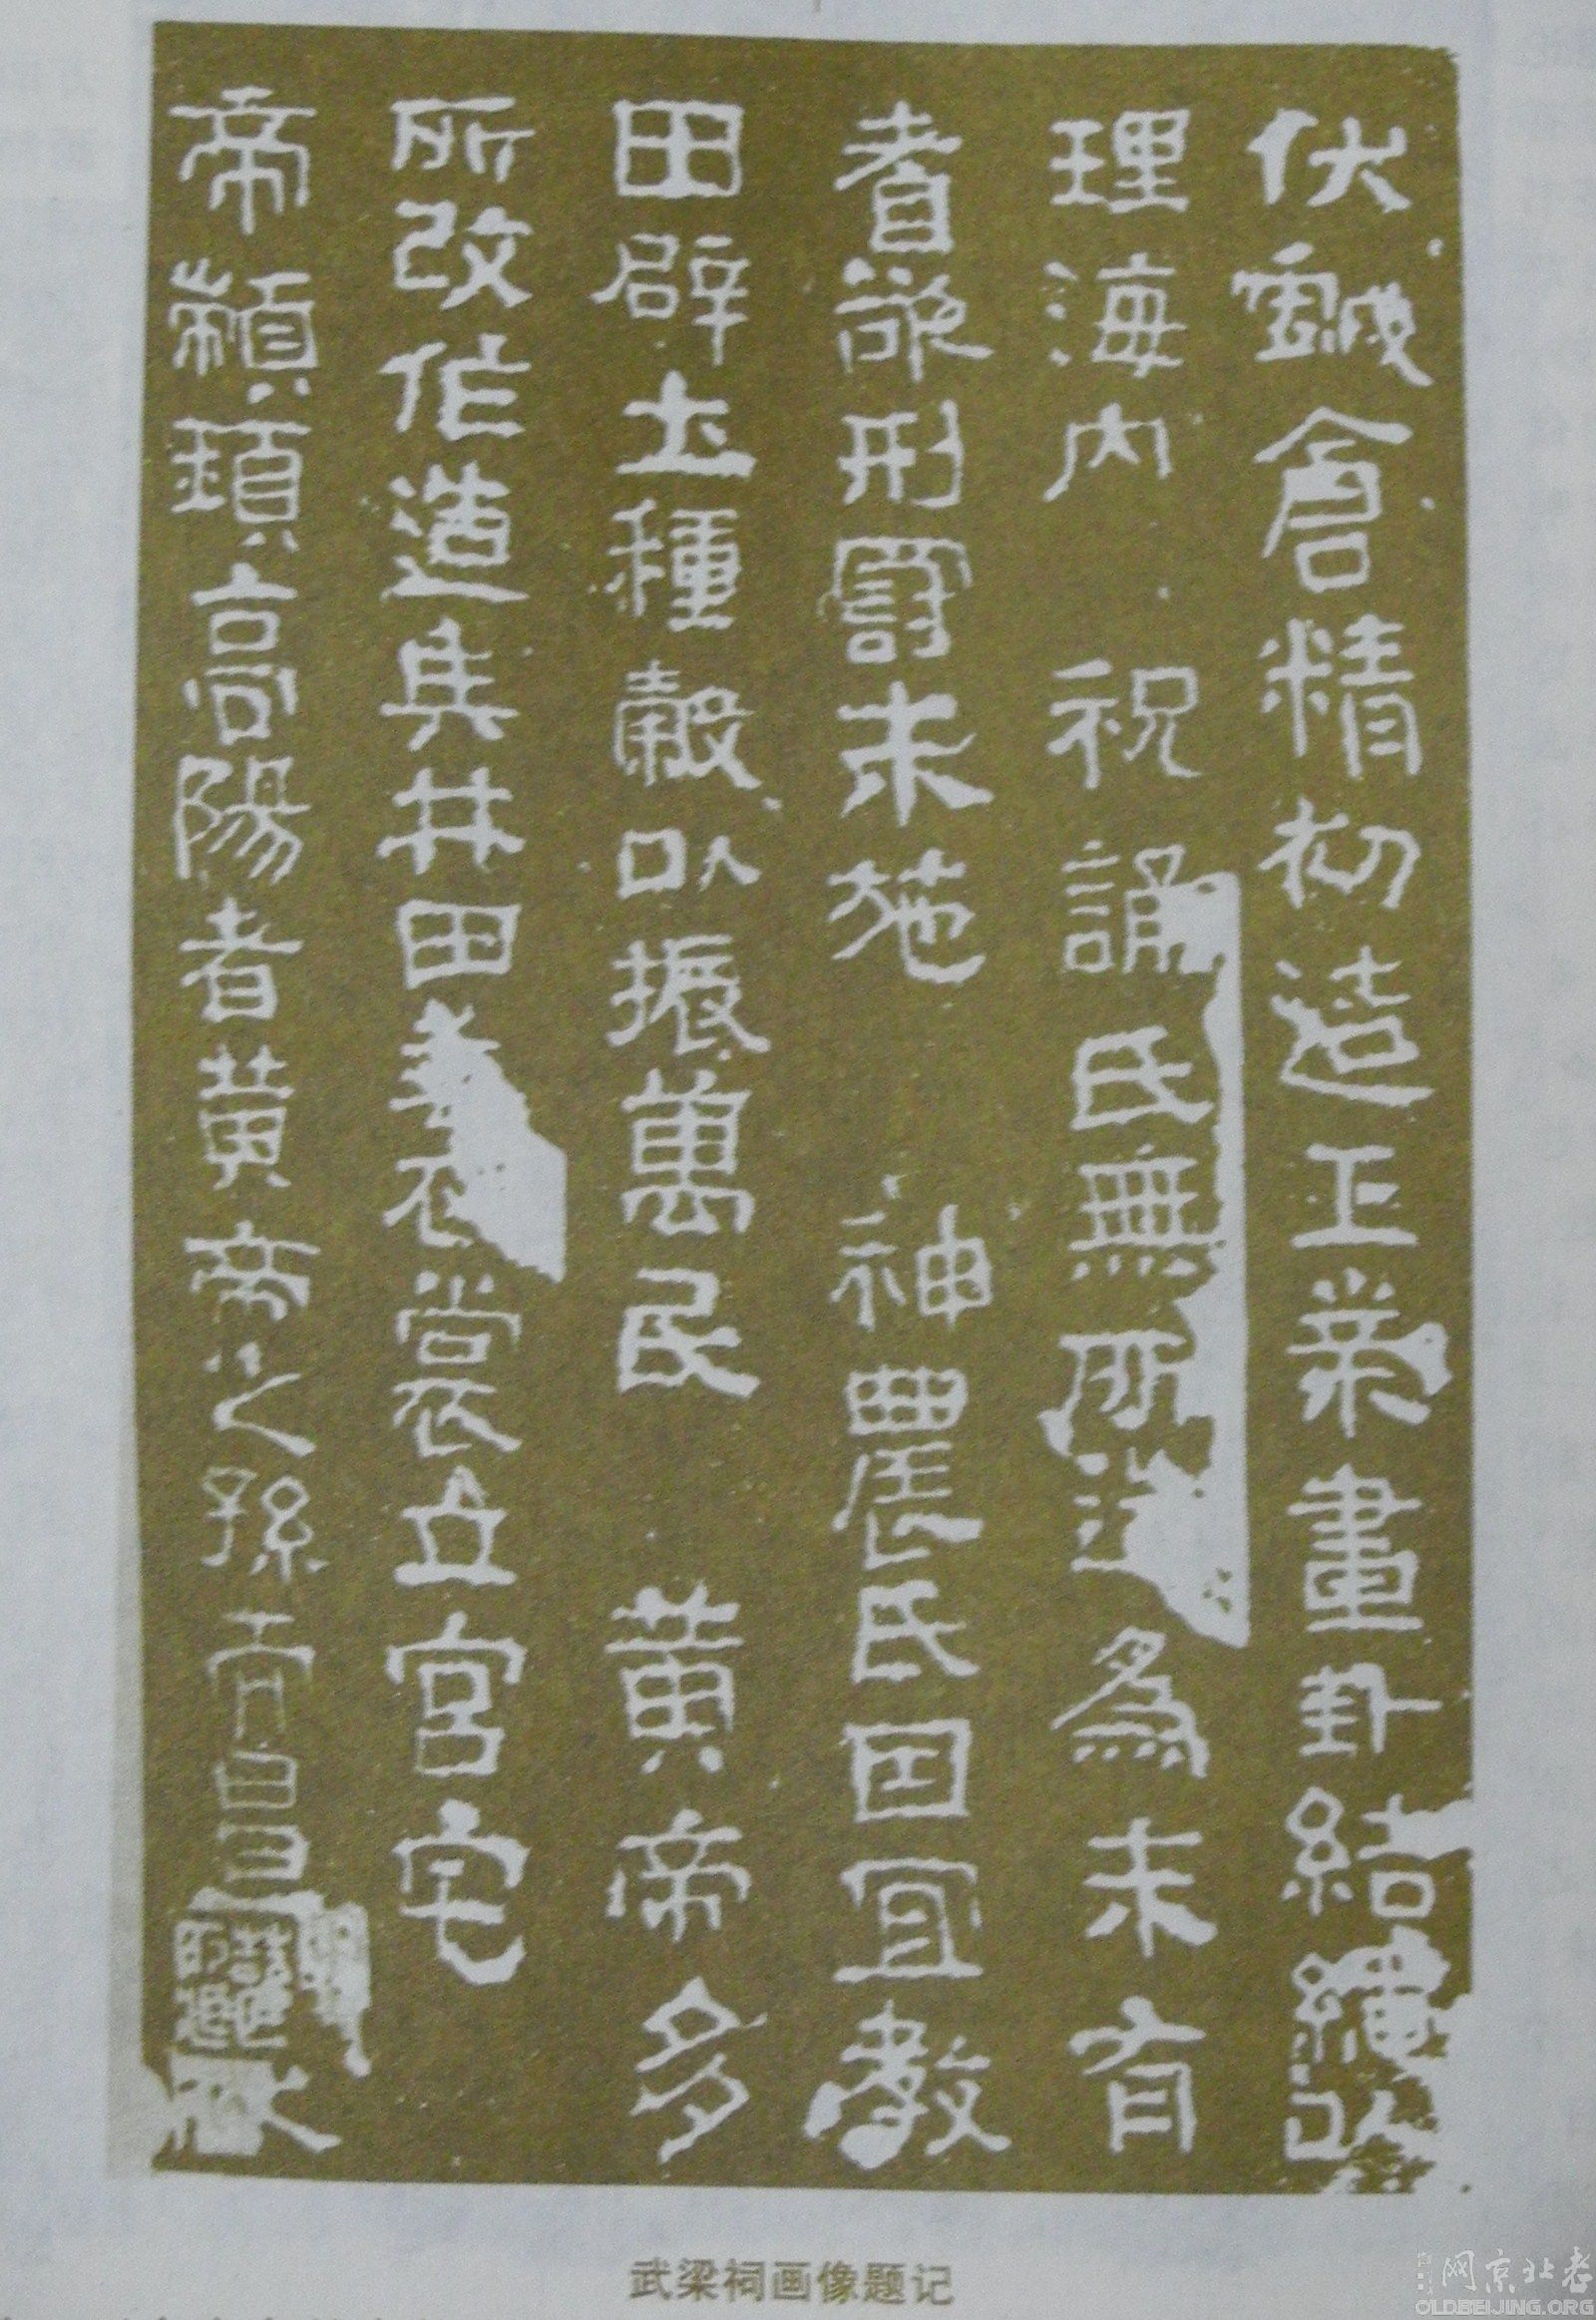 伏戲倉精初造王業畫卦結繩以
理海内　祝誦氏無所造爲未有
耆欲刑罰未施　神農氏因宜教
田辟土種穀以振萬民　黃帝多
所改作造兵井田垂衣裳立宮宅
帝顓頊高陽者黃帝之孫而昌
武梁祠画像题记
老北京网
OLDBEIJING.ORG